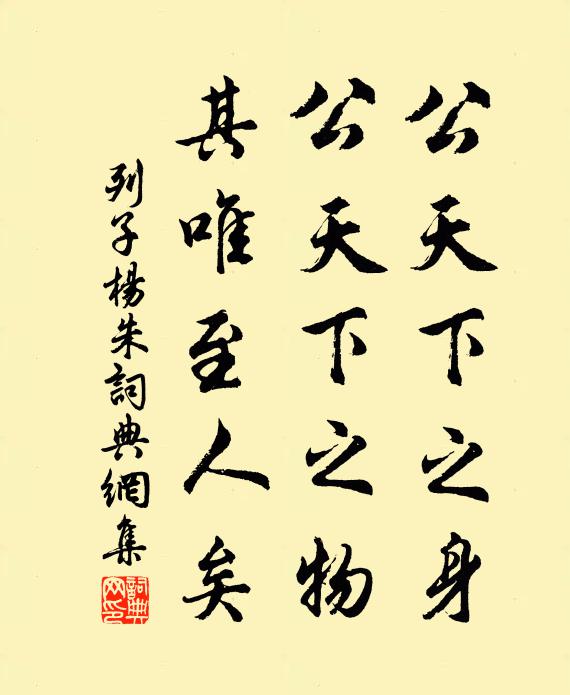 公天下之身
公天下之物
其唯至人矣
列子楊朱詞典網集
詞典
网印